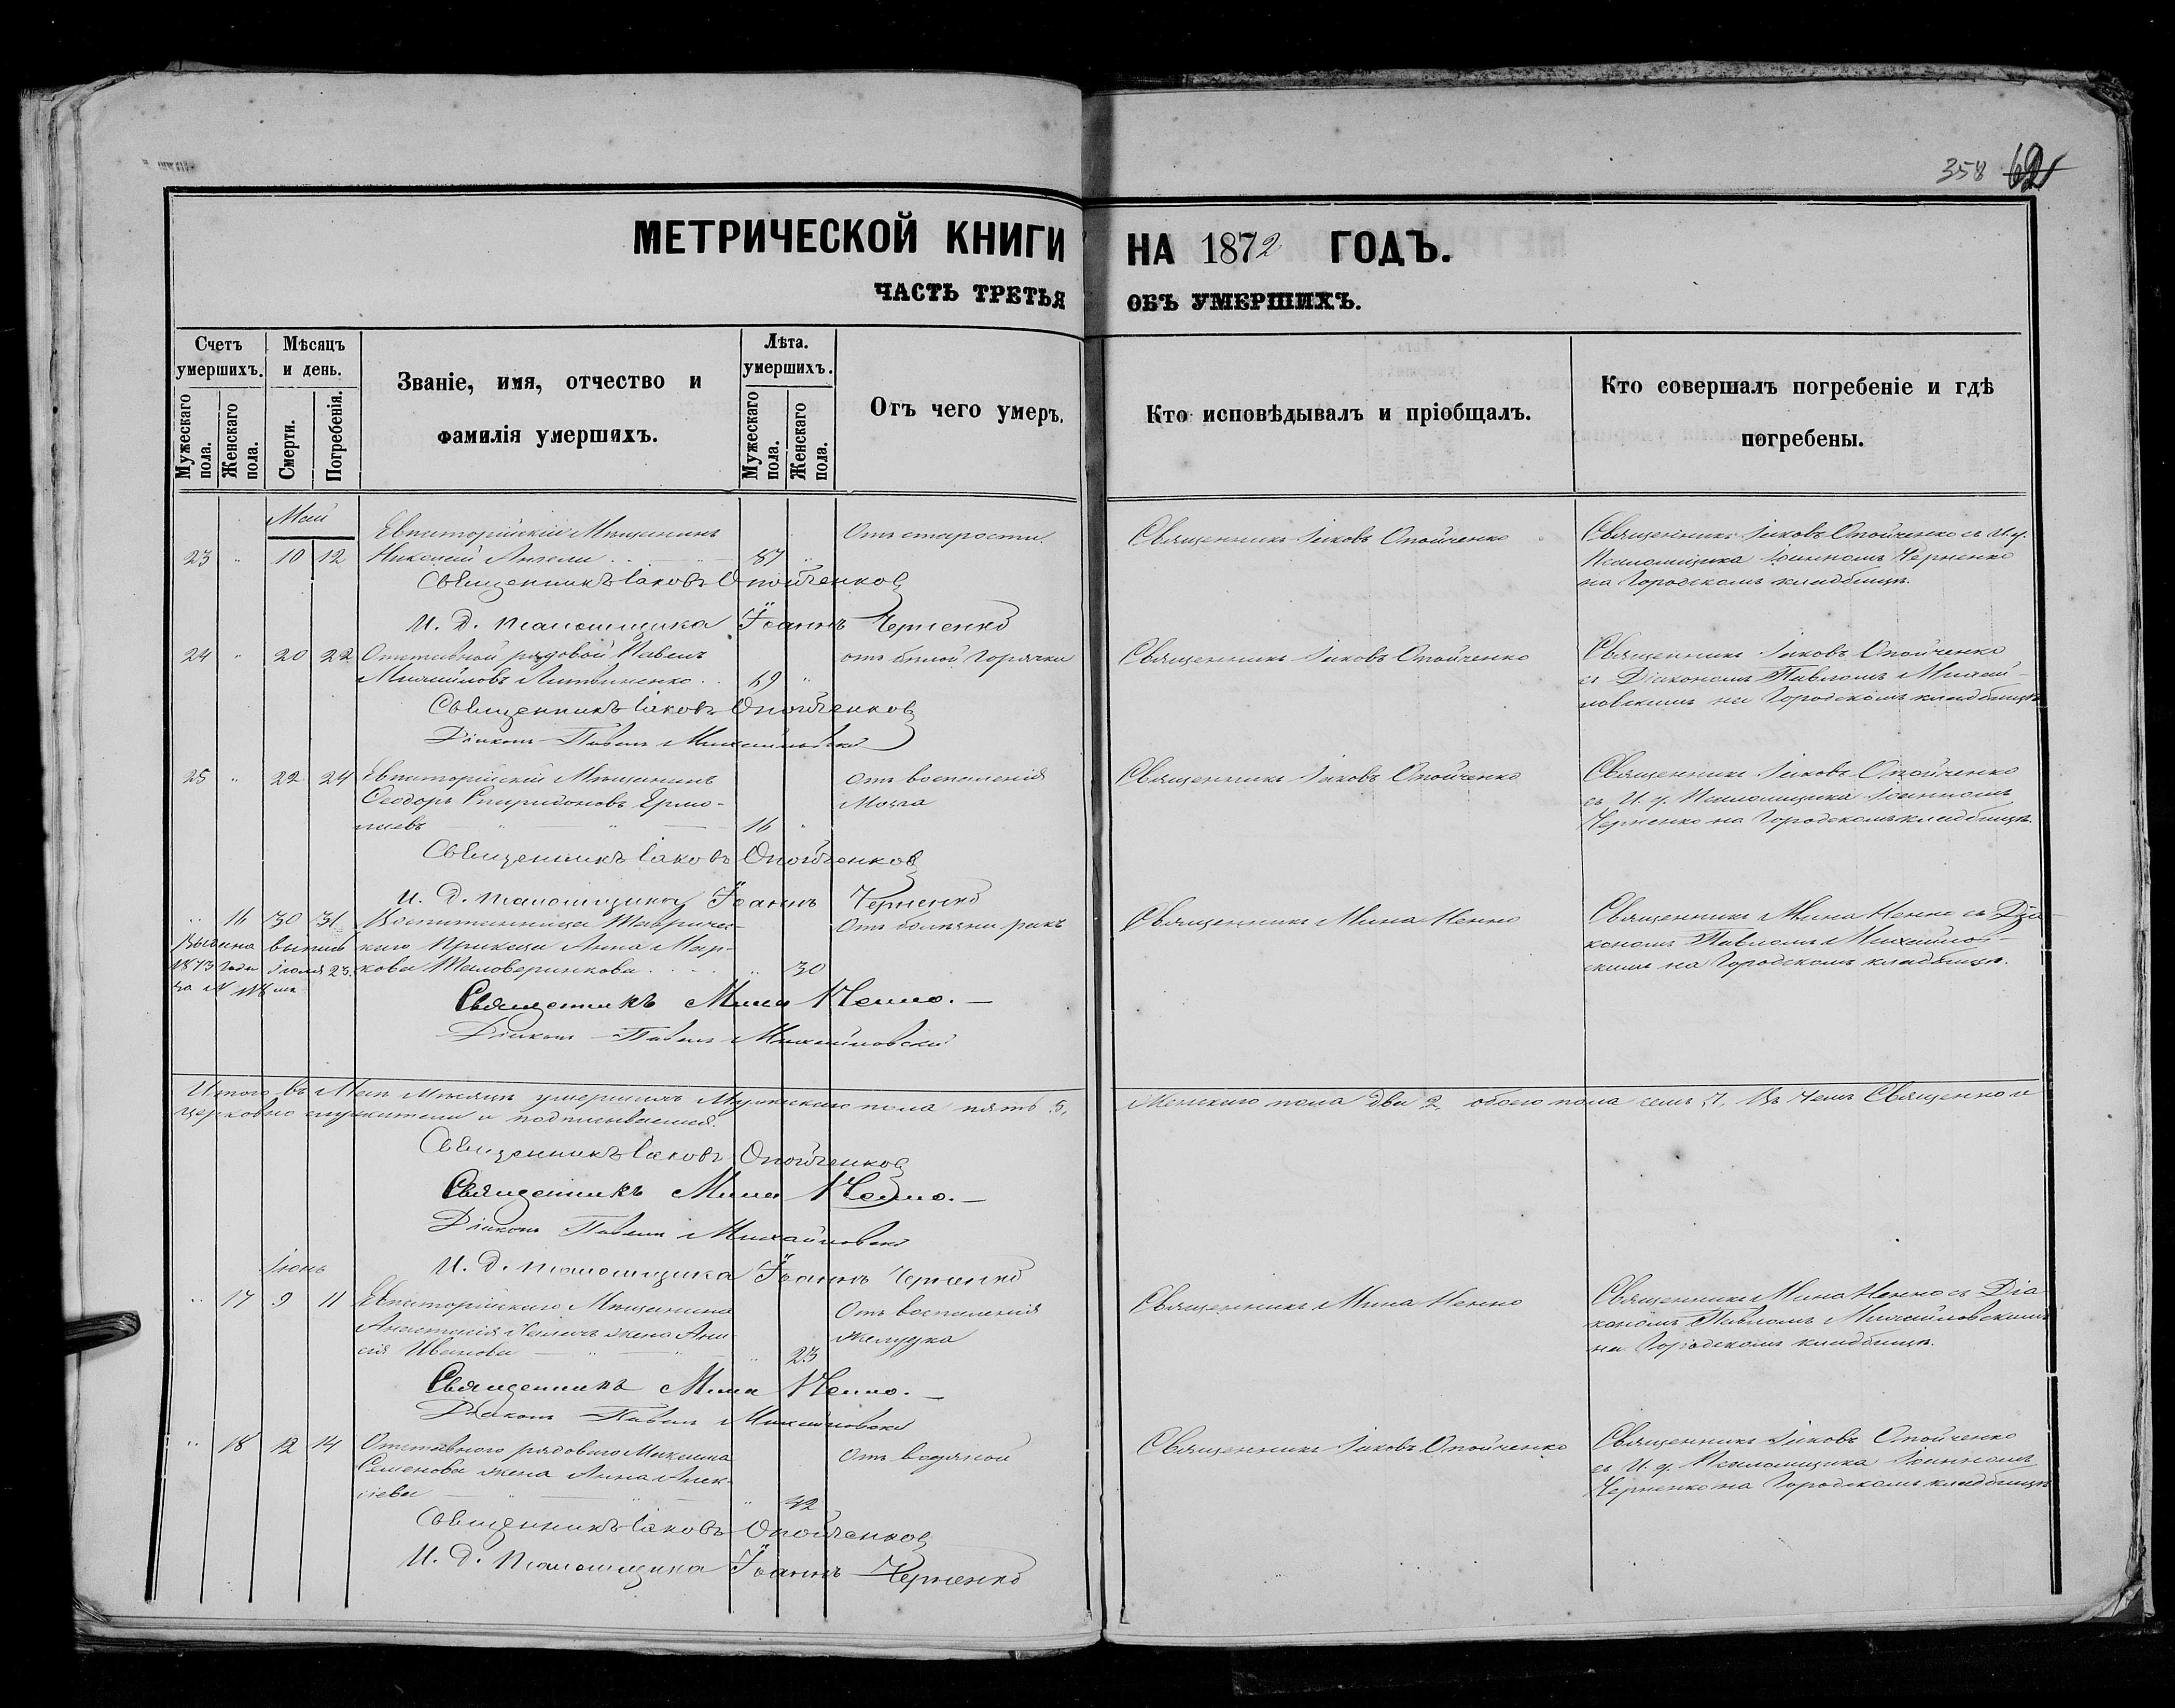 358 62
МЕТРИЧЕСКОЙ КНИГИ НА 1872 ГОДЪ.
ЧАСТЬ ТРЕТЬЯ ОБЪ УМЕРШИХЪ.
Счетъ умершихъ.
Мужескаго пола.
Женскаго пола.
Мѣсяцъ и день.
Смерти.
Погребенія.
Званіе, имя, отчество и
фамилія умершихъ.
Лѣта. умершихъ.
Мужескаго пола.
Женскаго пола.
Отъ чего умеръ.
Кто исповѣдывалъ и пріобщалъ.
Кто совершалъ погребеніе и гдѣ
погребены.
Май
Евпаторійскій Мѣщанинъ Отъ старости Священникъ Іаковъ Опойченко Священникъ Іаковъ Опойченко съ И. д.
23 " 10 12 Николай 87 " Псаломщика Іоанномъ Черненко
на Городскомъ кладбищѣ.
Священникъ Іаковъ Опойченковъ
И. д. псаломщика Іоаннъ Черненко
24 " 20 22 Отставной рядовой Павелъ отъ бѣлой горячки Священникъ Іаковъ Опойченко Священникъ Іаковъ Опойченко
Михайловъ Литвиненко 69 " съ Діакономъ Павломъ Михай-
ловскимъ на Городскомъ кладбищѣ
Священникъ Іаковъ Опойченковъ
Діаконъ Павелъ Михайловскій
25 " 22 24 Евпаторійскій Мѣщанинъ Отъ воспаленія Священникъ Іаковъ Опойченко Священникъ Іаковъ Опойченко
Ѳеодоръ Спиридоновъ Ермо- Мозга съ И. д. Псаломщика Іоанномъ
лаевъ 16 " Черненко на Городскомъ кладбищѣ.
Священникъ Іаковъ Опойченковъ
И. д. псаломщика Іоаннъ Черненко
" 16 30 31 Воспитанница Тавричес- Отъ болѣзни ракъ Священникъ Мина Ненно Священникъ Мина Ненно съ Діа-
каго Приказа Анна Мар- кономъ Павломъ Михайлов-
кова " 30 скимъ на Городскомъ кладбищѣ.
Выдана выпись
1873 Года Іюля 23.
за №
Священникъ Мина Ненно.
Діаконъ Павелъ Михайловскій
Итого въ Маѣ Мѣсяцѣ умершихъ Мужескаго пола пять 5, Женскаго пола два 2, обоего пола семь 7. Въ чемъ Священно и
церковно служители и подписываемся.
Священникъ Іаковъ Опойченковъ
Священникъ Мина Ненно.
Діаконъ Павелъ Михайловскій
И. д. псаломщика Іоаннъ Черненко
Іюнь
" 17 9 11 Евпаторійскаго Мѣщанина Отъ воспаленія Священникъ Мина Ненно Священникъ Мина Ненно съ Діа
жена желудка кономъ Павломъ Михайловскимъ
Иванова " 23 на Городскомъ кладбищѣ.
Священникъ Мина Ненно.
Діаконъ Павелъ Михайловскій
" 18 12 14 Отставного рядового Отъ водяной Священникъ Іаковъ Опойченко Священникъ Іаковъ Опойченко
Семенова жена Анна Алек- съ И. д. Псаломщика Іоанномъ
сіева " 42 Черненко на Городскомъ кладбищѣ
Священникъ Іаковъ Опойченковъ
И. д. псаломщика Іоаннъ Черненко